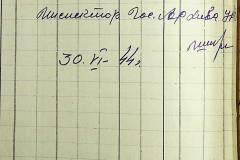 Инспектор Гос. Архива
30. VI - 44 г.